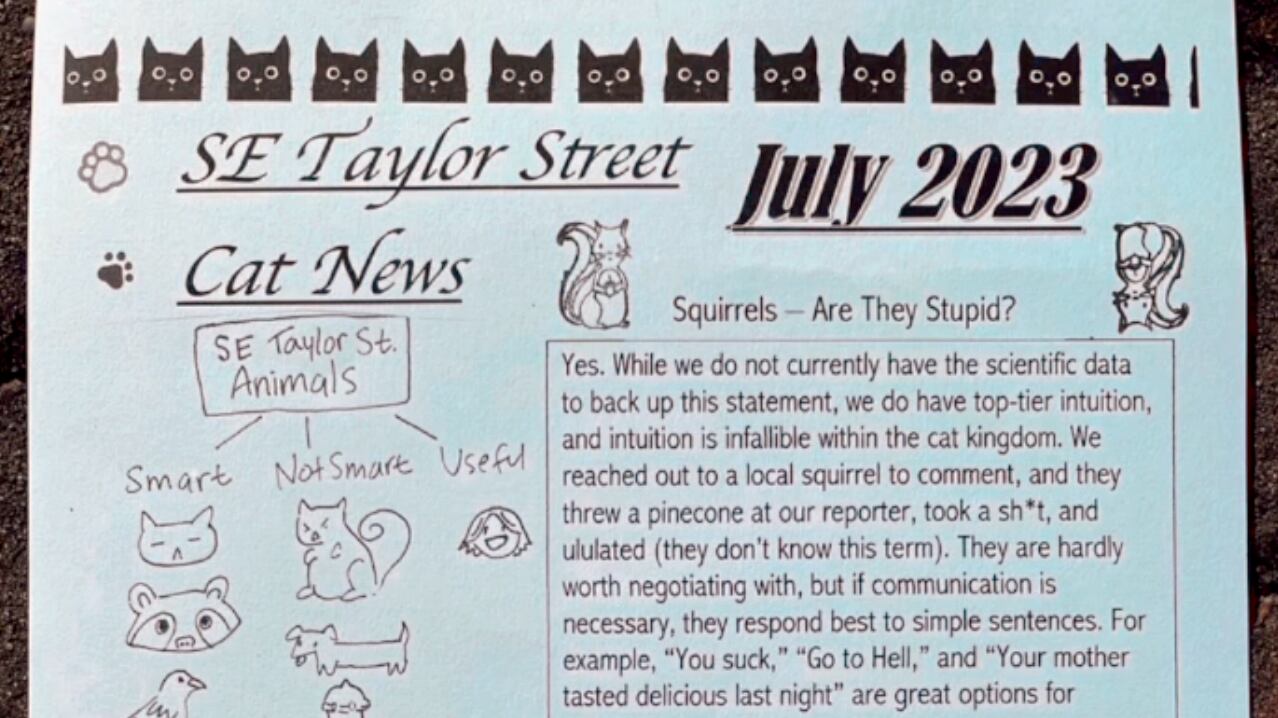 SE Taylor Street
Cat News
July 2023
SE Taylor St.
Animals
Smart
Not Smart
Useful
Squirrels – Are They Stupid?
Yes. While we do not currently have the scientific data
to back up this statement, we do have top-tier intuition,
and intuition is infallible within the cat kingdom. We
reached out to a local squirrel to comment, and they
threw a pinecone at our reporter, took a sh*t, and
ululated (they don't know this term). They are hardly
worth negotiating with, but if communication is
necessary, they respond best to simple sentences. For
example, “You suck,” “Go to Hell,” and “Your mother
tasted delicious last night” are great options for